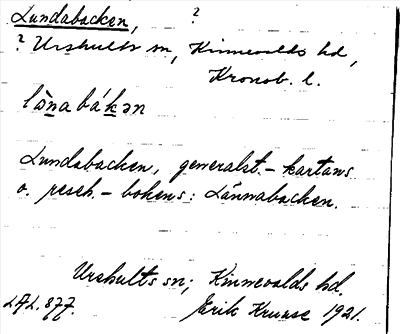 Lundabacken, ?
? Urshults sn, Kinnevalds hd,
Kronob. l.
lànabákən
Lundabacken, generalst.-kartans
o. jesch.-bokens: Lännabacken.
Urshults sn; Kinnevalds hd.
LAL. 877. Erik Kruuse 1921.